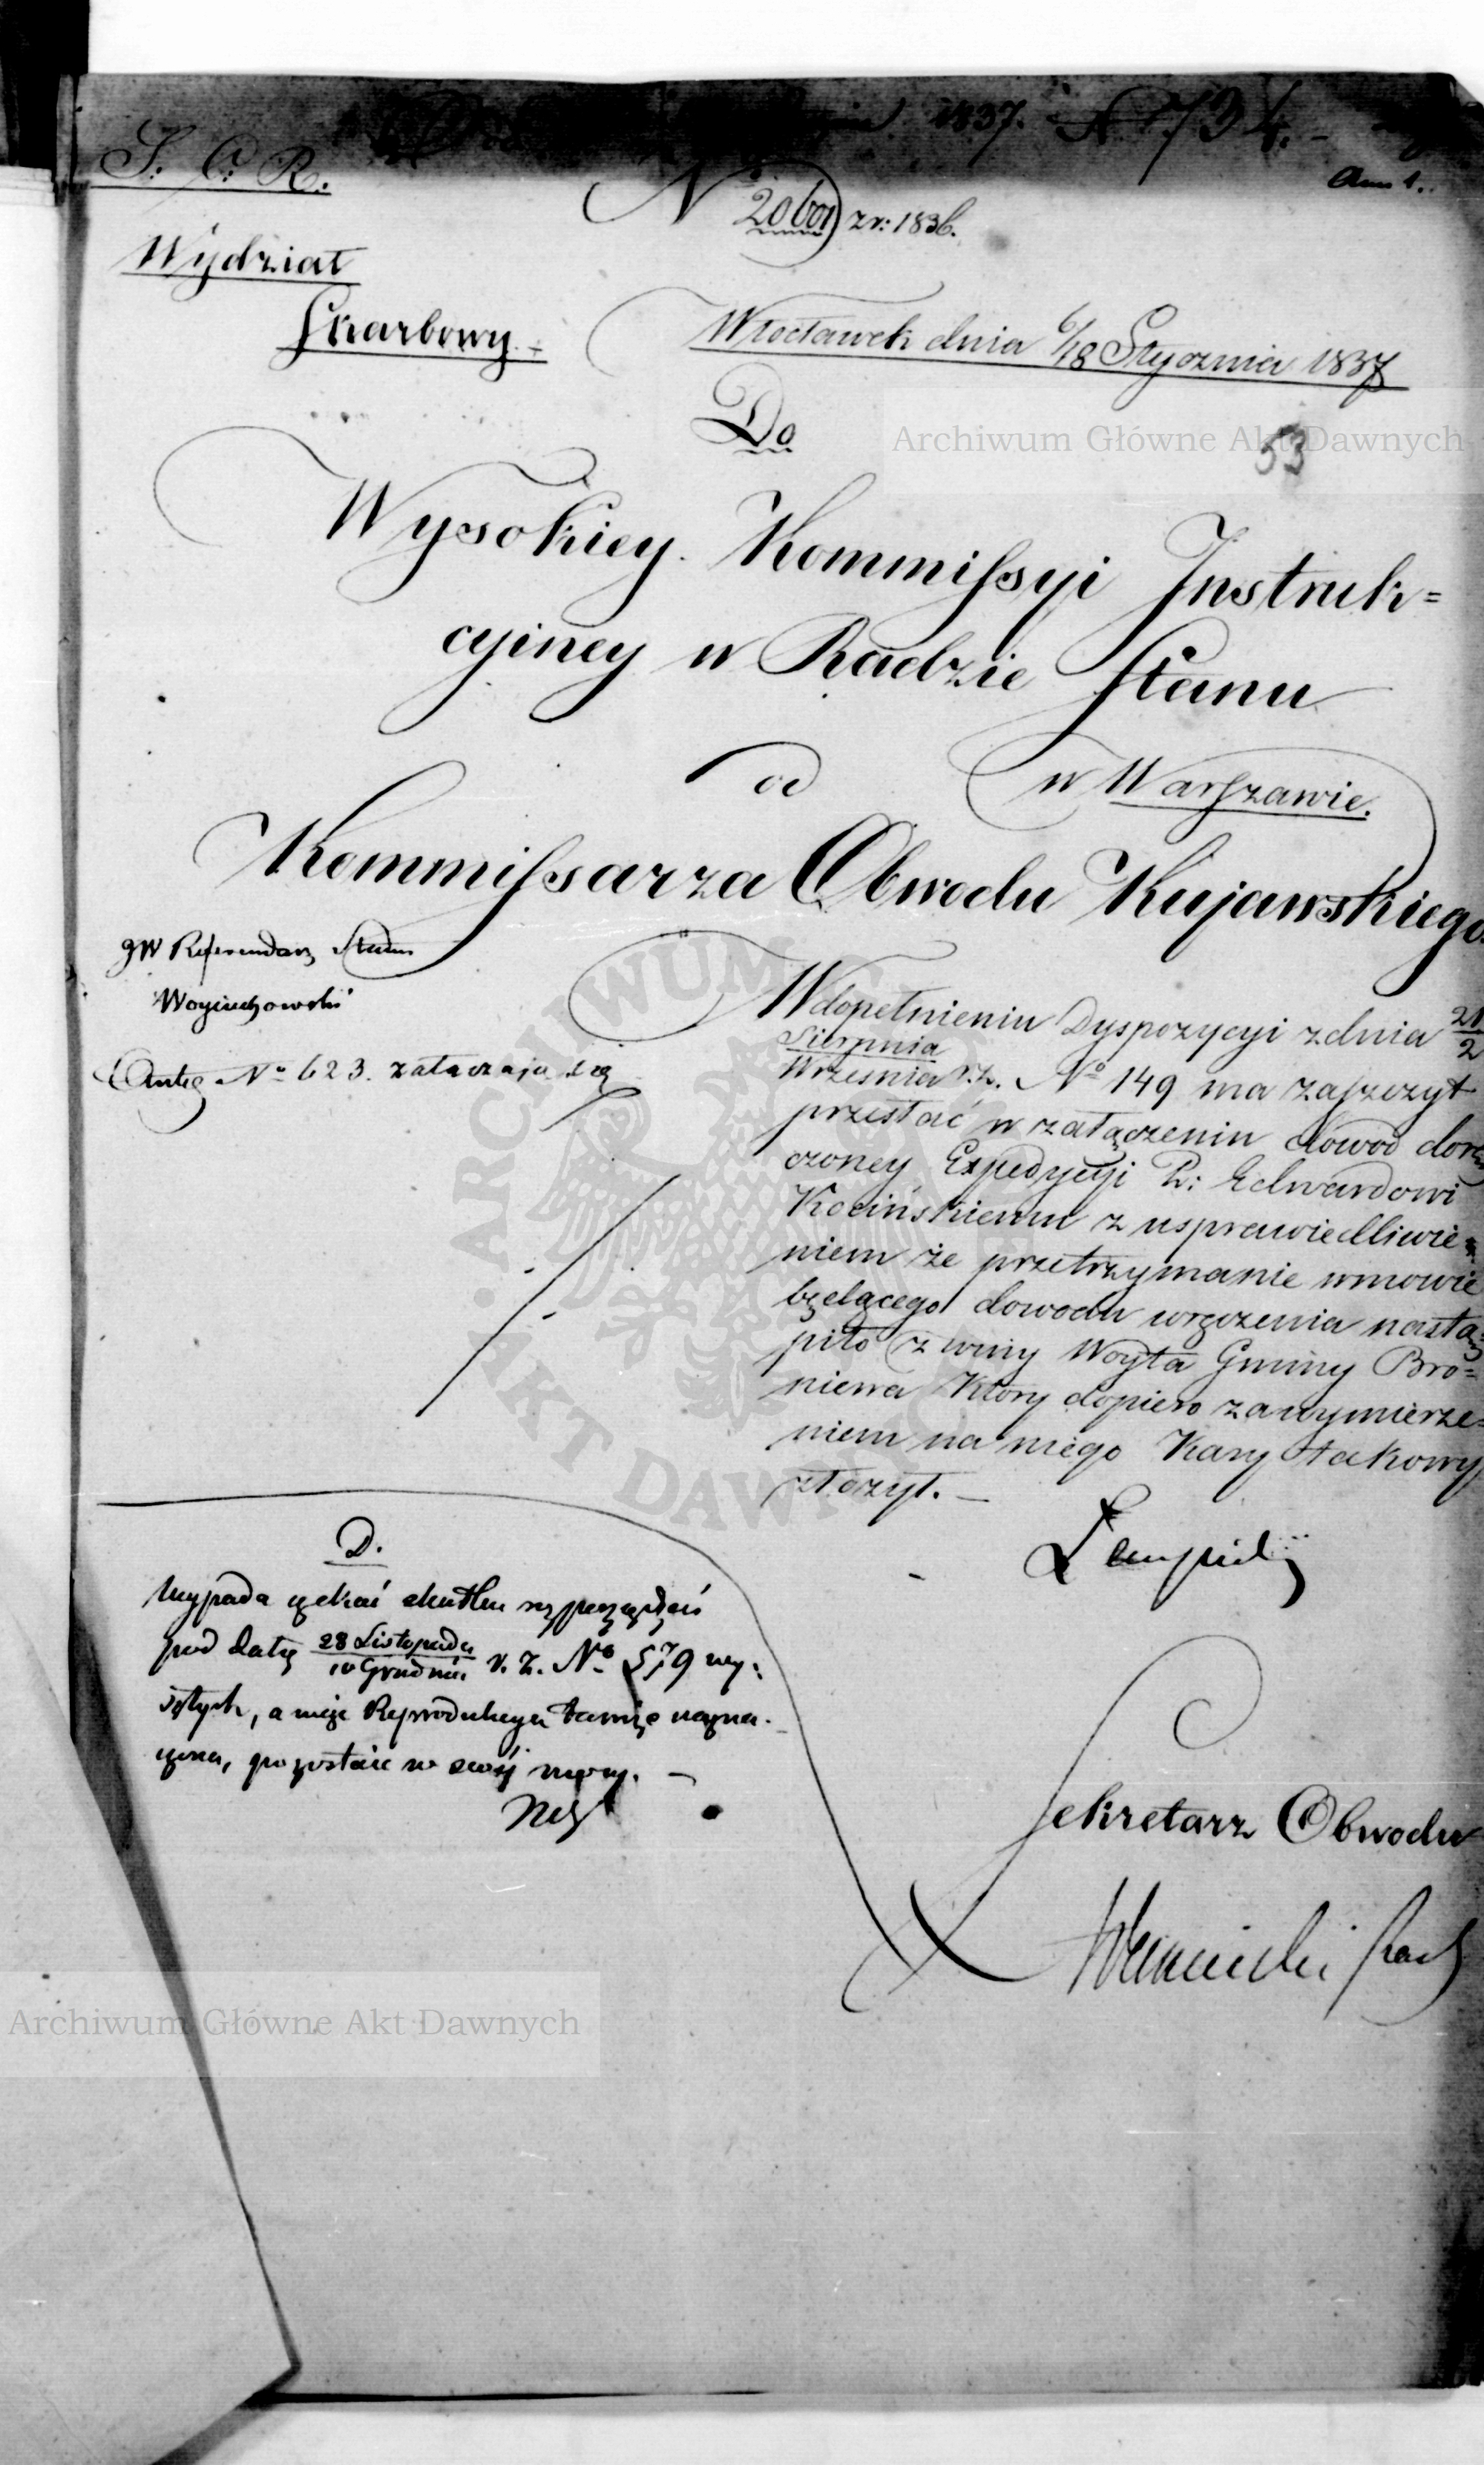 1837. N 734.
S: C: R.
Ann 1.
No 20601 z r: 1836.
Wydział
Skarbowy
Włocławek dnia 6/18 Stycznia 1837
Do
53
Wysokiey Kommissyi Instruk=
cyiney w Radzie Stanu
w Warszawie.
od
Kommissarza Obwodu Kujawskiego
JW Referendarz Stanu
Woyciechowski
Akta No 623. załączają się
W dopełnieniu Dyspozycyi z dnia 21/2
Sierpnia
Września r.z. No 149 ma zaszczyt
przesłać w załączeniu dowod dorę
czoney Expedycyi P: Edwardowi
Kocińskiemu z usprawiedliwie=
niem że przetrzymanie w mowie
będącego dowodu wręczenia nastą=
piło z winy Woyta Gminy Bro=
niewa który dopiero za wymierze=
niem na niego Kary takowy
złożył. —
D.
Wypada czekać skutku rozporządzeń
pod datą 28 Listopada
10 Grudnia r. z. No 579 wy:
szłych, a
pozostaie w swéj mocy. —
Sekretarz Obwodu
Archiwum Główne Akt Dawnych
ARCHIWUM
AKT DAWNYCH
Archiwum Główne Akt Dawnych